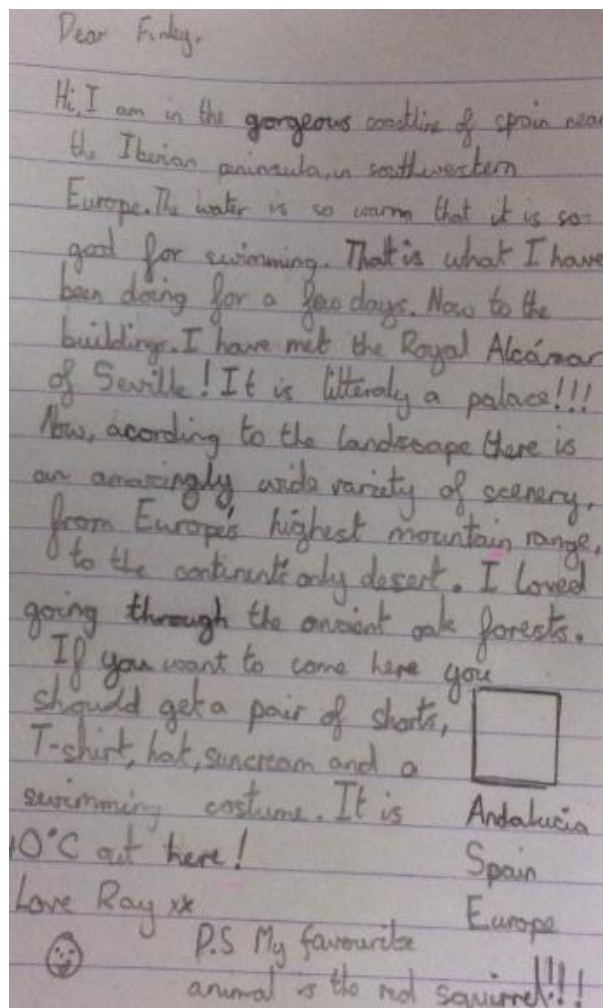 Dear Finley.
Hi, I am in the gorgeous coastline of spain near
the Iberian peninsula, in southwestern
Europe. The water is so warm that it is so
good for swimming. That is what I have
been doing for a few days. Now to the
buildings. I have met the Royal Alcázar
of Seville! It is litteraly a palace!!!
Now, acording to the landscape there is
an amazingly wide variety of scenery,
from Europe's highest mountain range,
to the continents only desert. I loved
going through the ancient oak forests.
If you want to come here you
should get a pair of shorts,
T-shirt, hat, suncream and a
swimming costume. It is
0°C out here!
Love Ray xx
Andalucia
Spain
Europe
P.S My favourite
animal is the red squirrel!!!